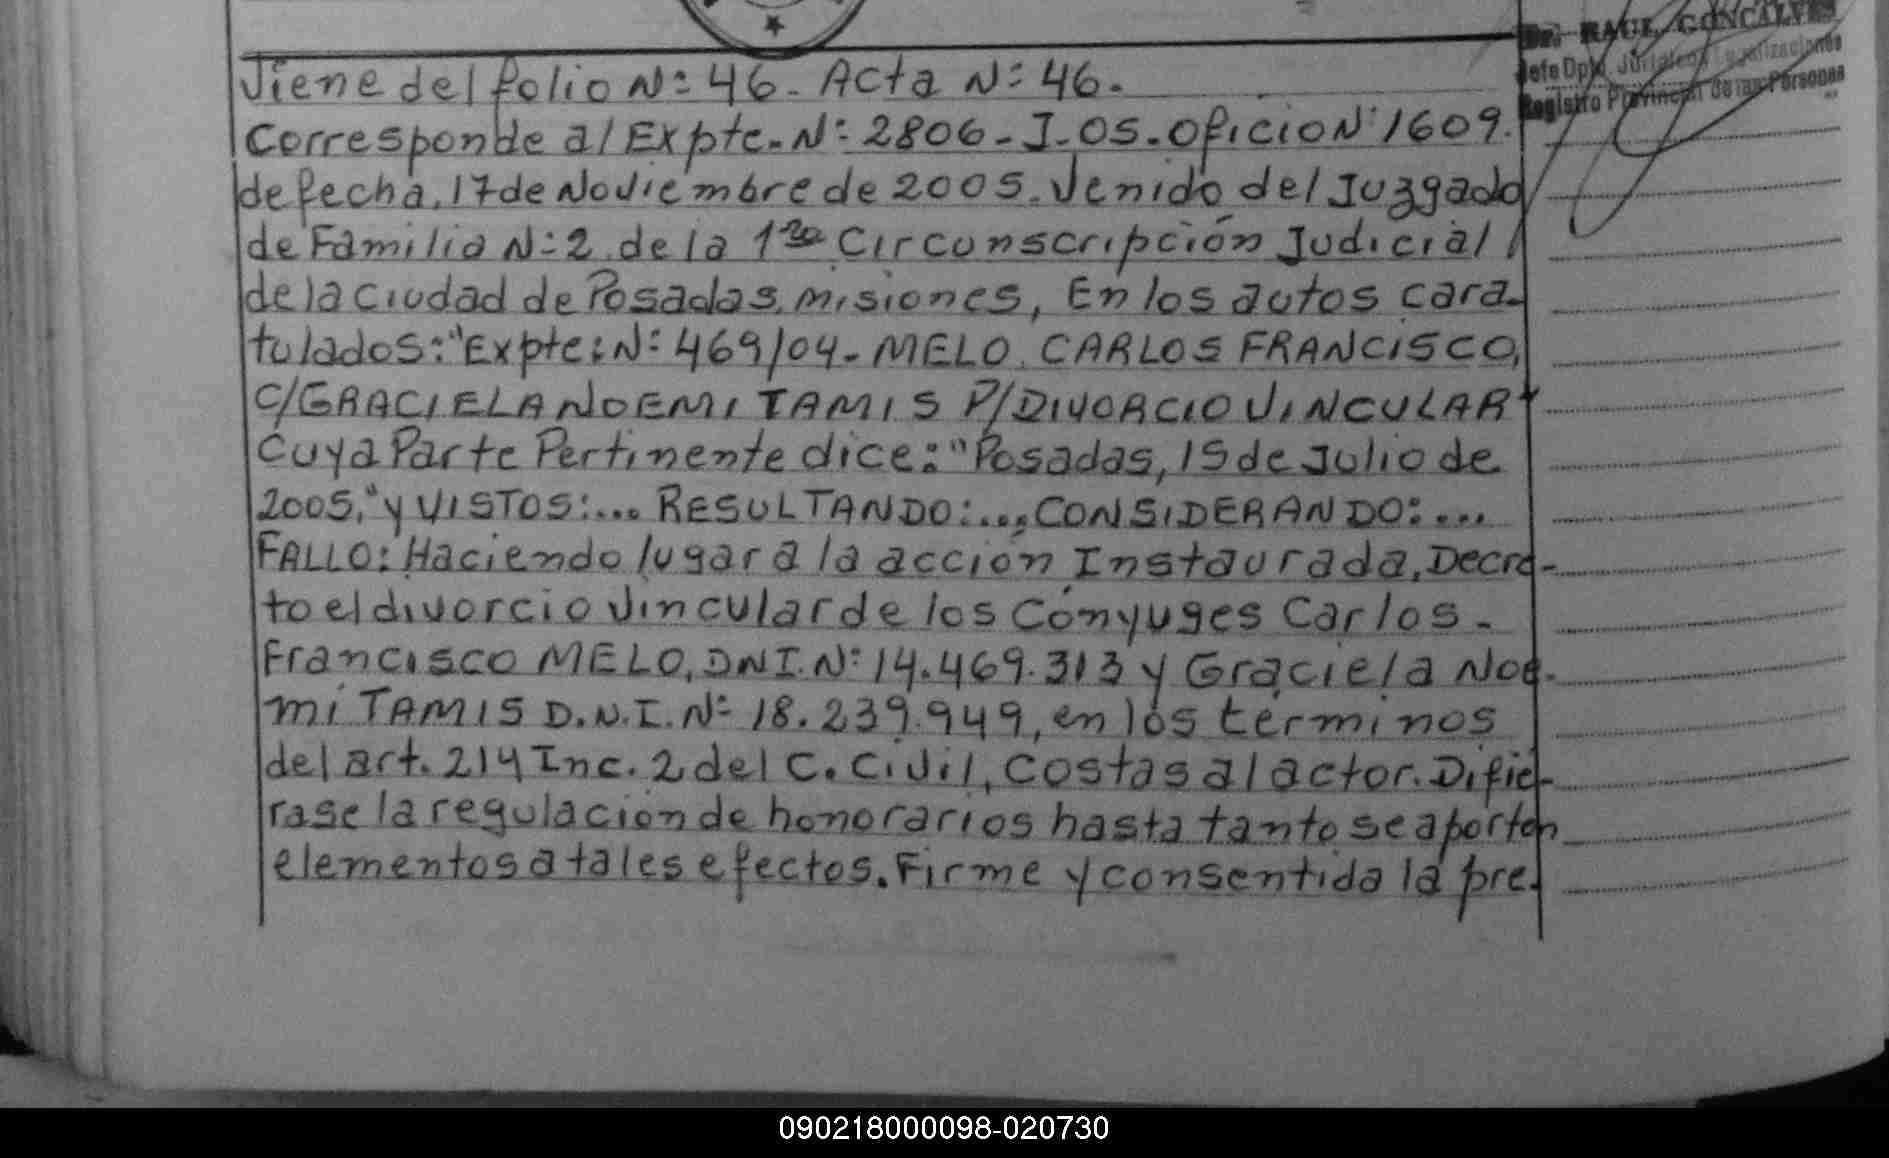 Dr. RAUL GONCALVES
Jefe Dpto. Jurídico Legalizaciones
Registro Provincial de las Personas
Viene del folio N: 46. Acta N: 46.
Corresponde al Expte. N: 2806-I-05. Oficio N: 1609.
de fecha, 17 de Noviembre de 2005. Venido del Juzgado
de Familia N: 2 de la 1ra Circunscripción Judicial
de la Ciudad de Posadas, Misiones, En los autos cara-
tulados: "Expte: N: 469/04- MELO CARLOS FRANCISCO,
C/GRACIELA NOEMI TAMIS P/DIVORCIO VINCULAR"
Cuya Parte Pertinente dice: "Posadas, 15 de Julio de
2005," y VISTOS:... RESULTANDO:... CONSIDERANDO:...
FALLO: Haciendo lugar a la acción Instaurada, Decre-
to el divorcio Vincular de los Cónyuges Carlos -
Francisco MELO, DNI. N: 14.469.313 y Graciela Noe-
mí TAMIS D.N.I. N: 18.239.949, en los terminos
del art. 214 Inc. 2 del C. Civil, Costas al actor. Difié-
rase la regulación de honorarios hasta tanto se aporten
elementos a tales efectos. Firme y consentida la pre-
090218000098-020730